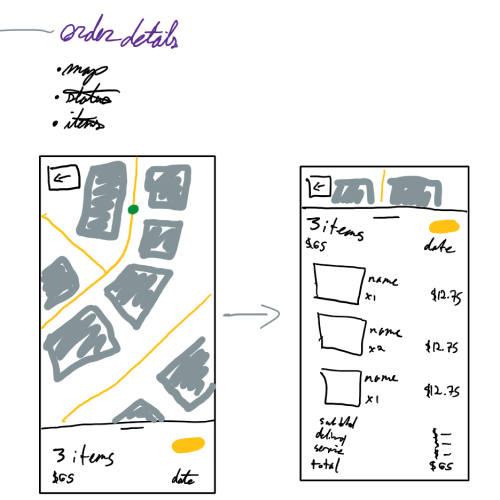 order details
• map
• status
• items
←
3 items
$65 date
←
3 items
$65 date
name
x1 $12.75
name
x2 $12.75
name
x1 $12.75
subtotal $ —
delivery $ —
service $ —
total $65